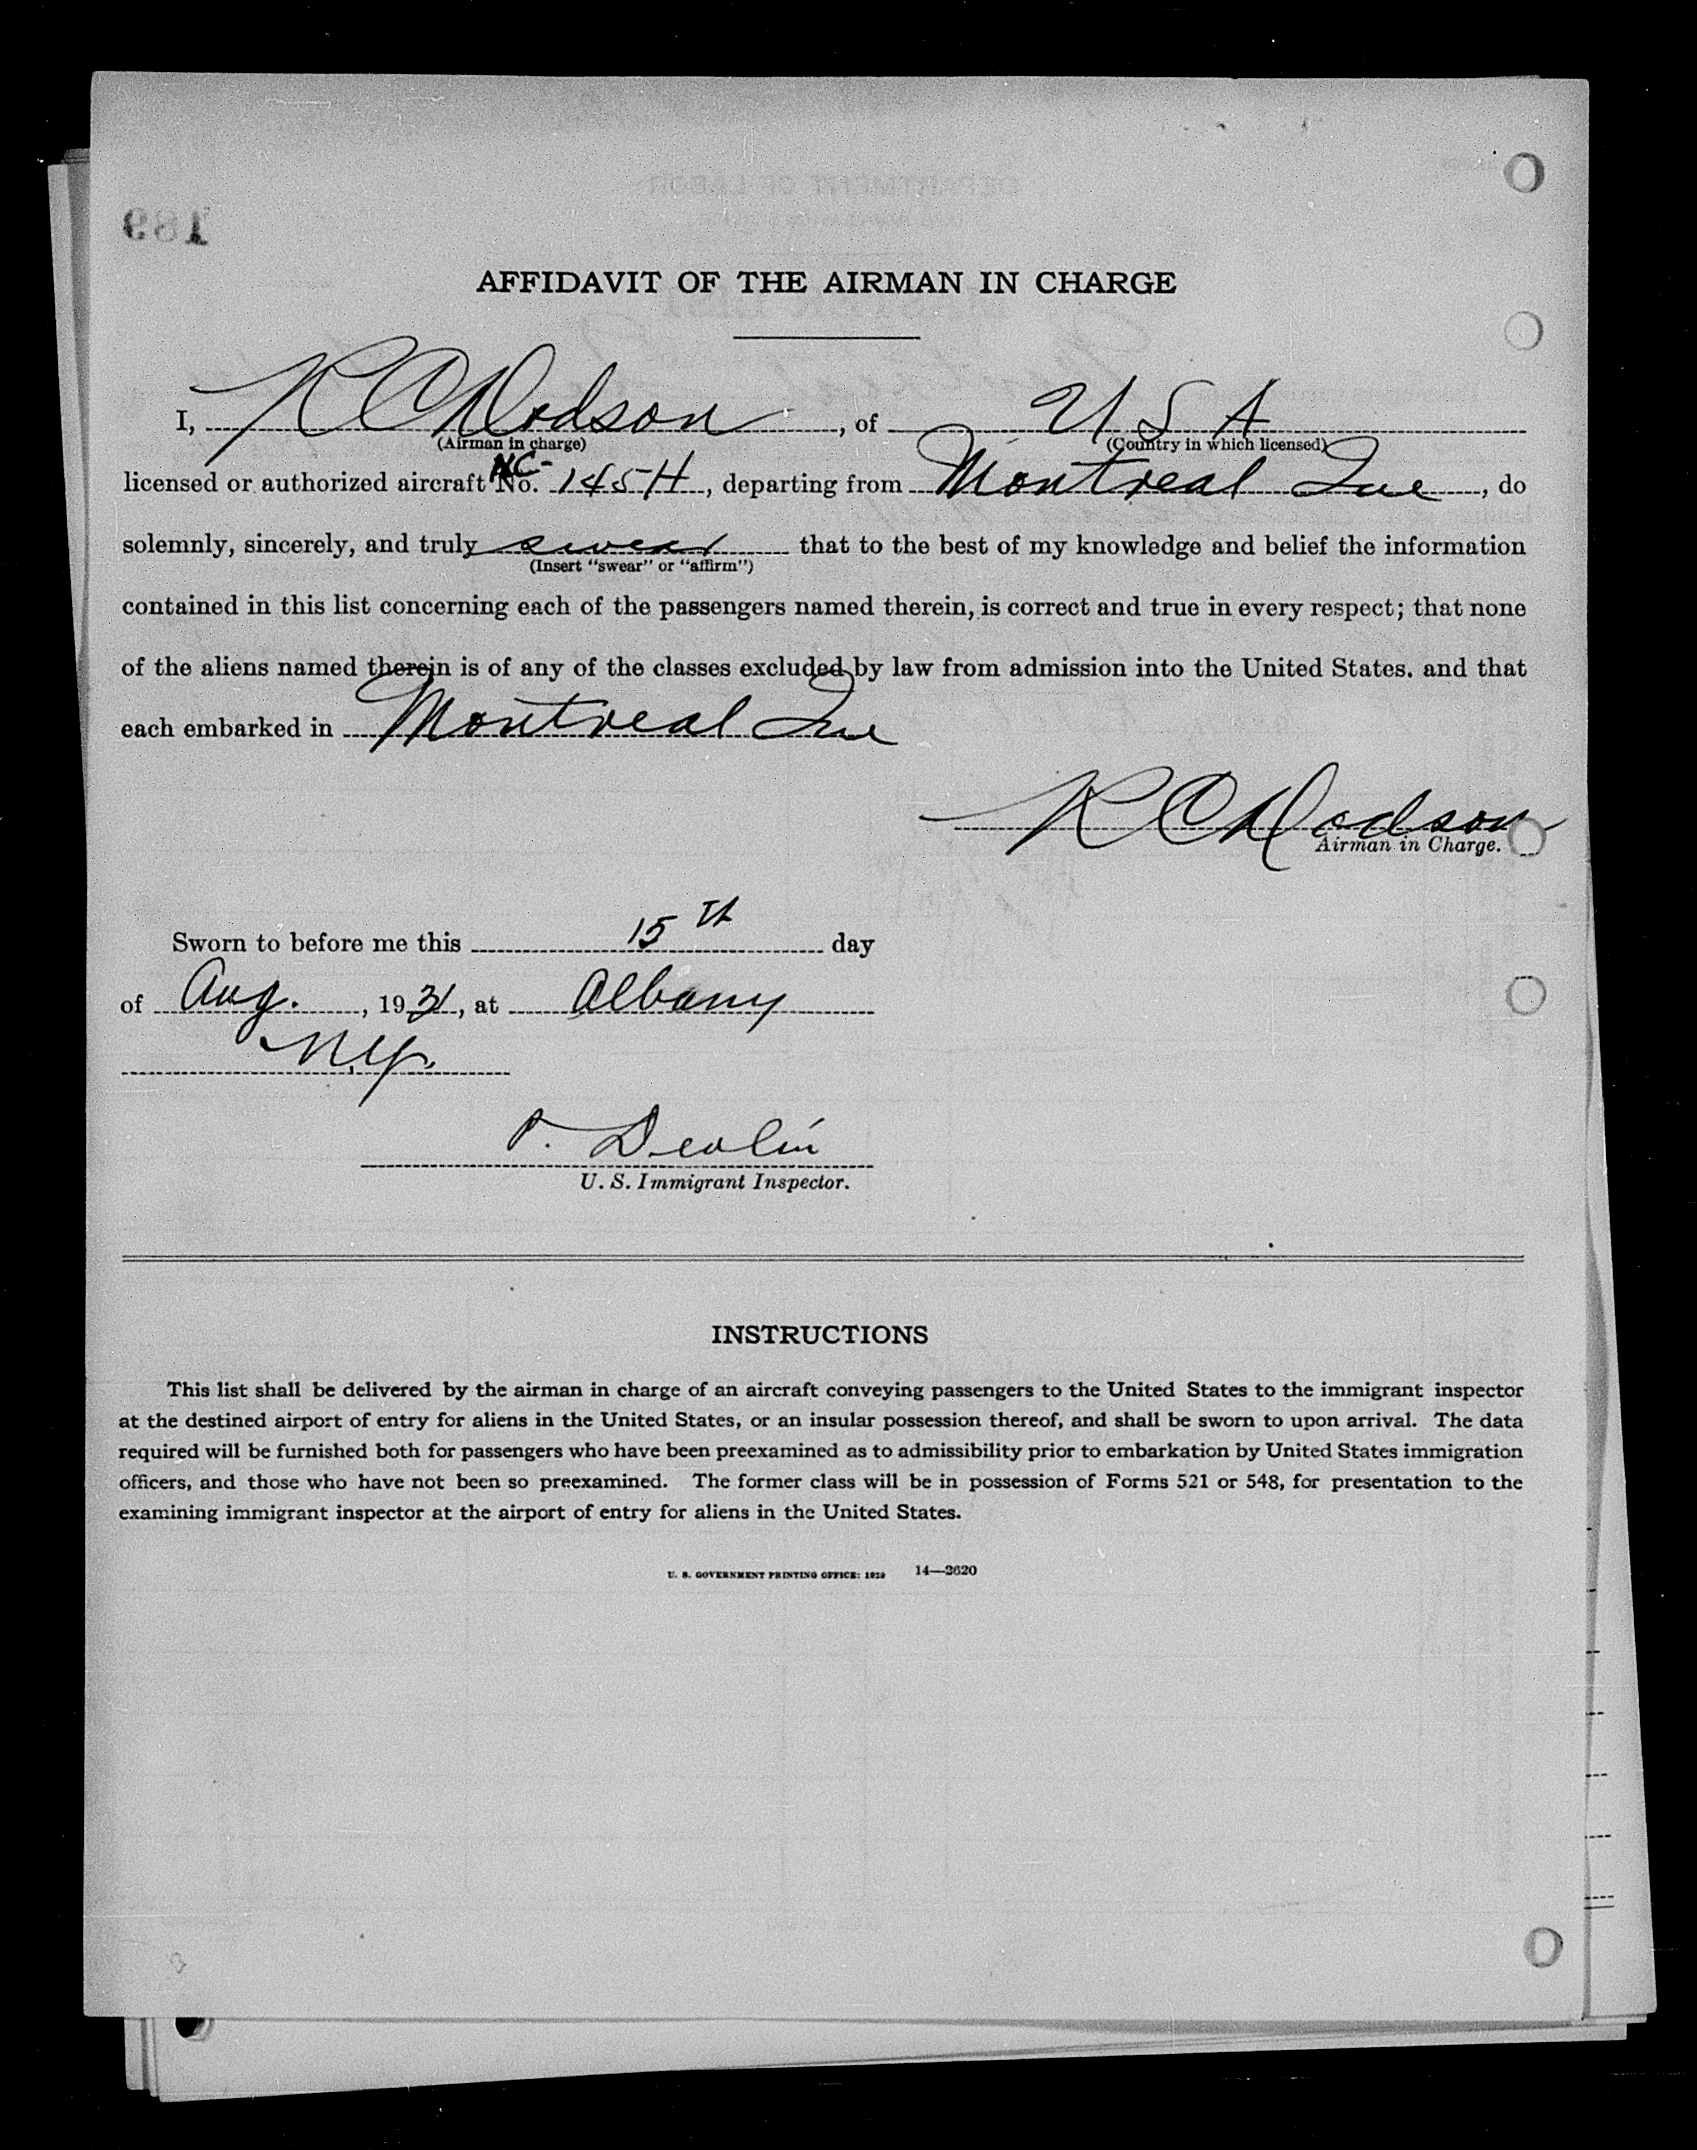 189
AFFIDAVIT OF THE AIRMAN IN CHARGE
I, R C Dodson, of U S A
(Airman in charge) (Country in which licensed)
licensed or authorized aircraft NC- No. 145H, departing from Montreal Que, do
solemnly, sincerely, and truly swear that to the best of my knowledge and belief the information
(Insert "swear" or "affirm")
contained in this list concerning each of the passengers named therein, is correct and true in every respect; that none
of the aliens named therein is of any of the classes excluded by law from admission into the United States. and that
each embarked in Montreal Que
R C Dodson
Airman in Charge.
Sworn to before me this 15th day
of Aug., 1931, at Albany
N.Y.
P. Devlin
U. S. Immigrant Inspector.
INSTRUCTIONS
This list shall be delivered by the airman in charge of an aircraft conveying passengers to the United States to the immigrant inspector
at the destined airport of entry for aliens in the United States, or an insular possession thereof, and shall be sworn to upon arrival. The data
required will be furnished both for passengers who have been preexamined as to admissibility prior to embarkation by United States immigration
officers, and those who have not been so preexamined. The former class will be in possession of Forms 521 or 548, for presentation to the
examining immigrant inspector at the airport of entry for aliens in the United States.
U. S. GOVERNMENT PRINTING OFFICE: 1929 14—3620